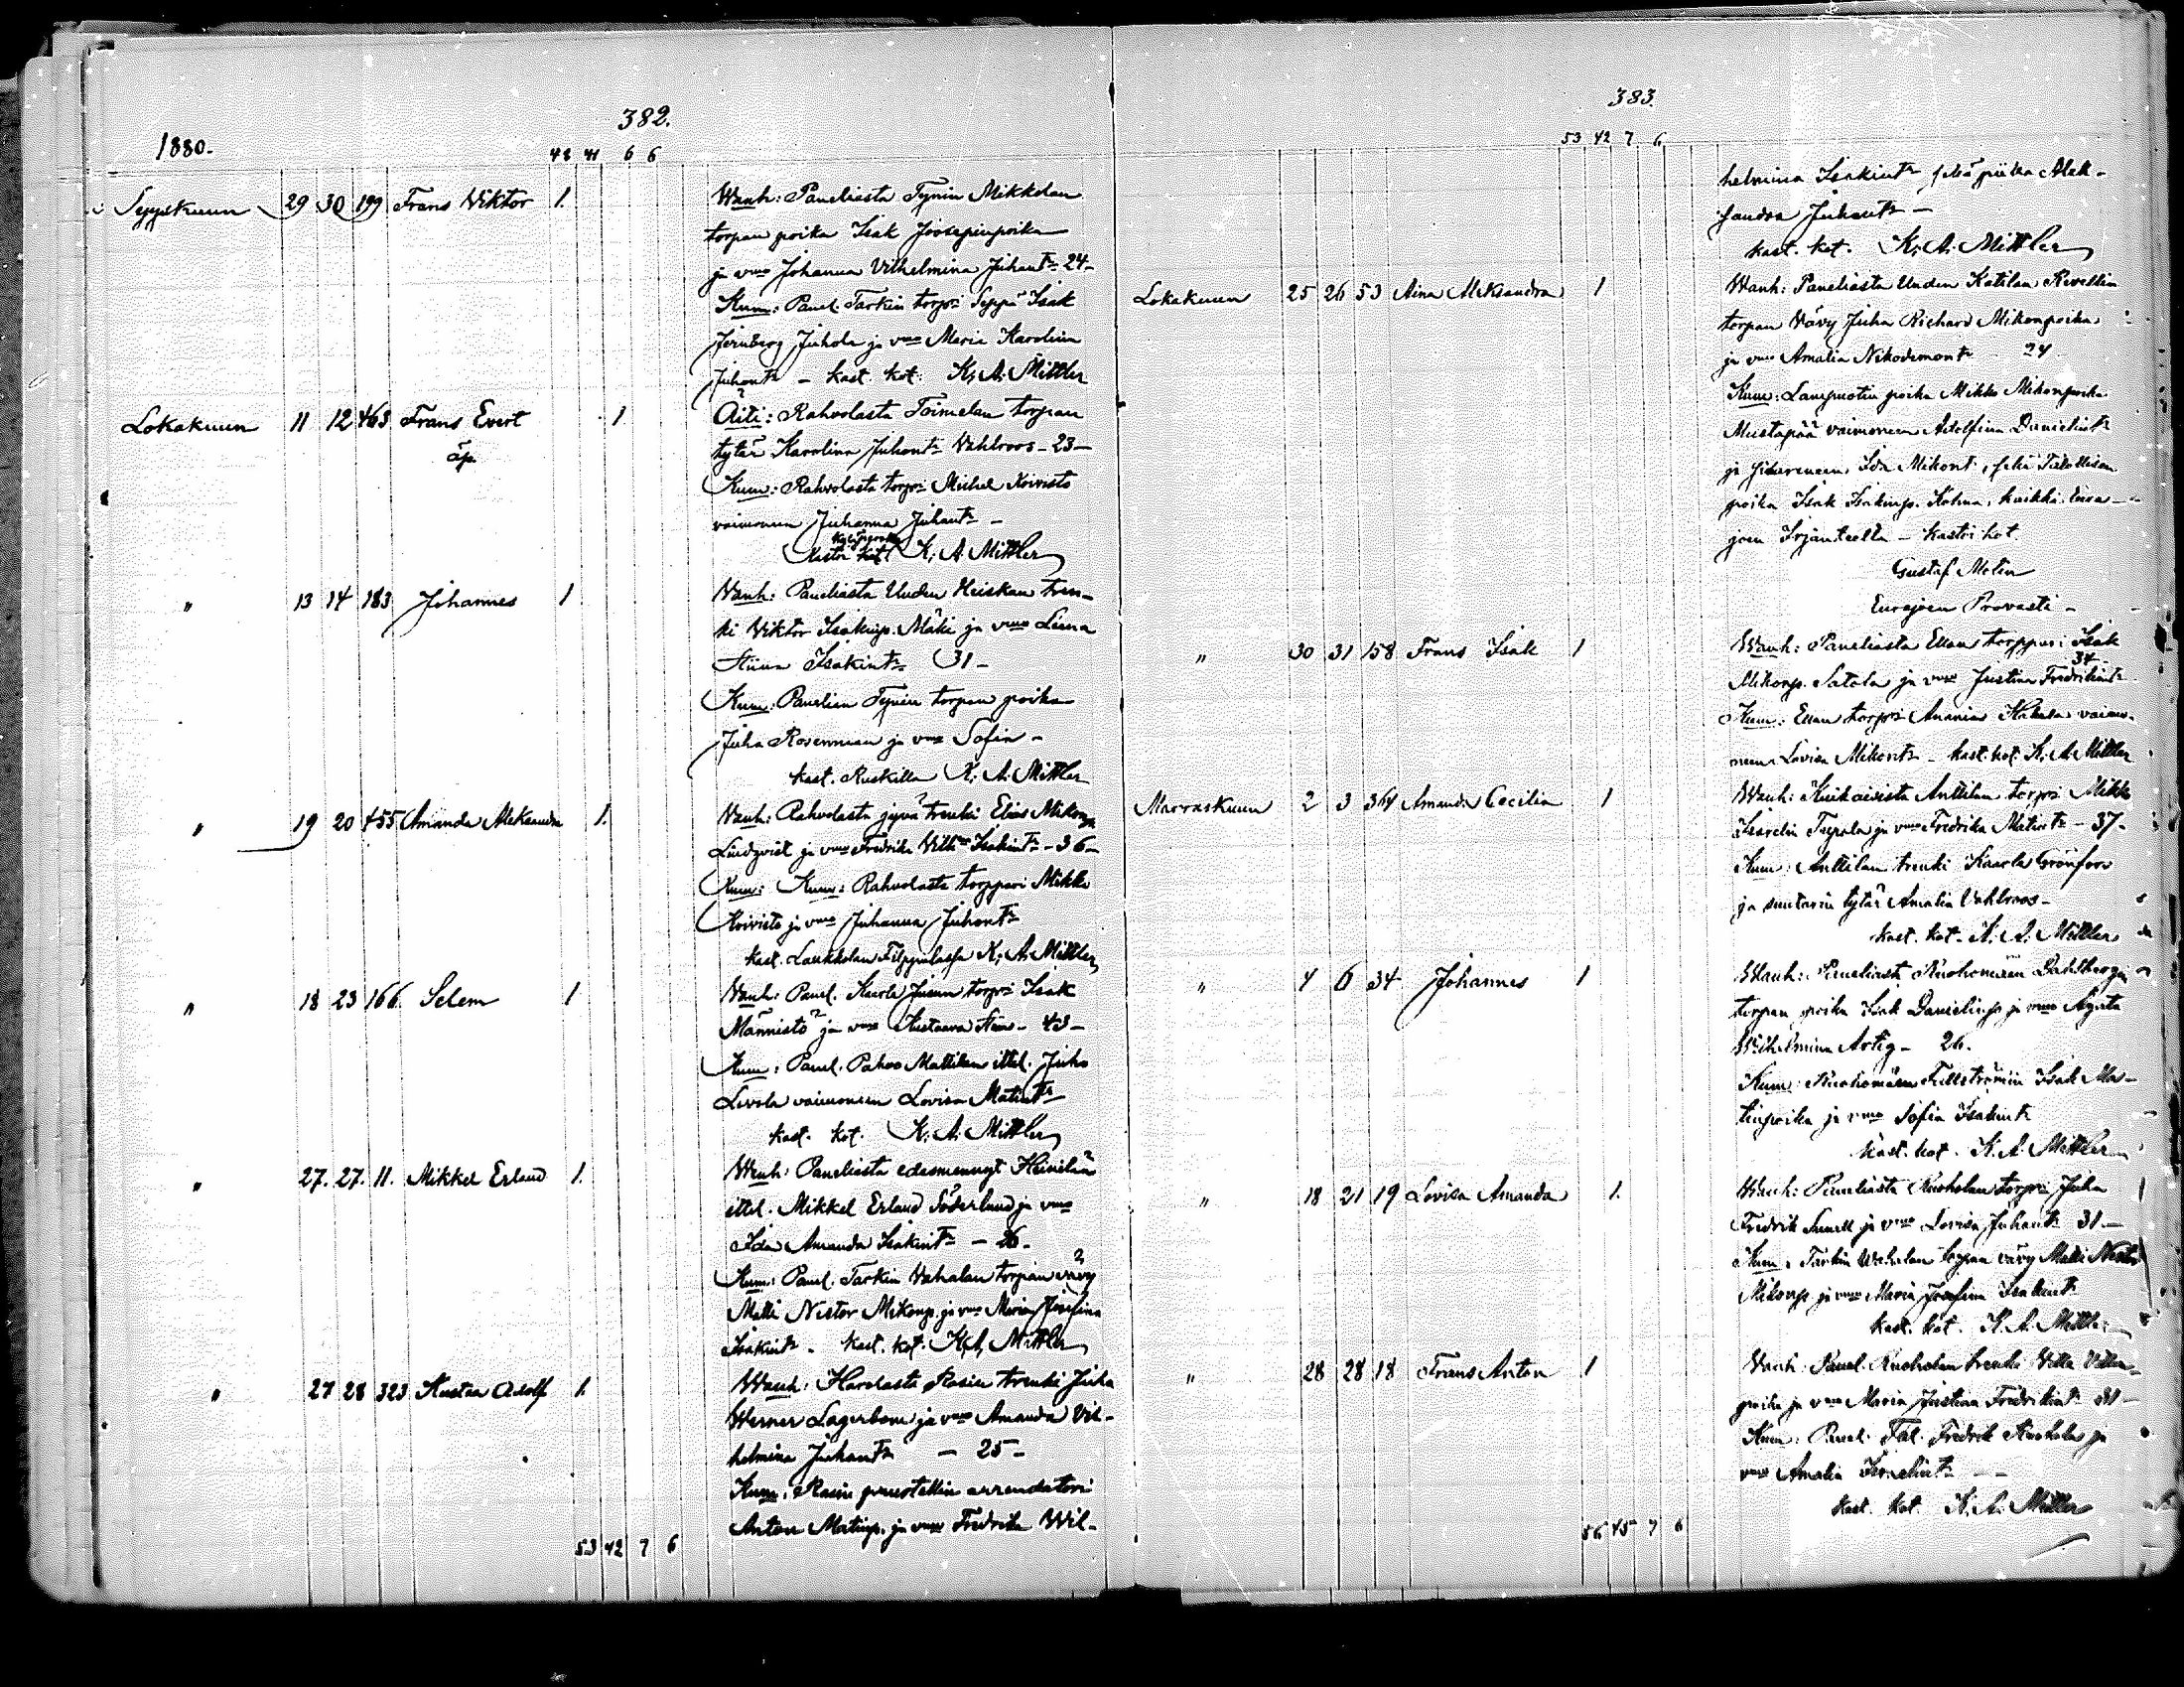 382.
1880.
48 41 6 6
Syyskuun 29 30 199 Frans Viktor 1.
Wanh: Paneliasta Tynin Mikkolan
torpan poika Isak Joosepinpoika
ja vmo Johanna Vilhelmina Juhant. 24-
Kum: Panel. Tarkin torpr. Seppä Isak
Jernberg Juhola ja vmo Maria Karolina
Juhont. - kast. kot. K. A. Mittler
Lokakuun 11 12 463 Frans Evert 1
äp.
Äiti: Rahvolasta Toimelan torpan
tytär Karolina Juhont. Vahlroos - 23 -
Kum: Rahvolasta torpr. Michel Koivisto
vaimoneen Juhanna Juhant. -
kot. K. A. Mittler
" 13 14 183 Johannes 1
Wanh: Paneliasta Uuden Heiskan tren-
ki Viktor Isakinp. Mäki ja vmo Liena
Stiina Isakint. 31 -
Kum: Panelian Tynin torpan poika
Juha Rosenman ja vmo Sofia -
kast. Ruskilla K. A. Mittler
" 19 20 455 Amanda Aleksandra 1.
Wanh: Rahvolasta jyvä trenki Elias Mikonp.
Lindqvist ja vmo Fredrika Vilh. Isakint. - 36 -
Kum: Kum: Rahvolasta torppari Mikke
Koivisto ja vmo Juhanna Juhont.
kast. Laukkolan Filppulassa K. A. Mittler
" 18 23 166 Selem 1
Wanh: Panel. Juuun torpr. Isak
Männistö ja vmo Kustaava - 43 -
Kum: Panel. Pahvo Mattilan ittel. Juho
Levola vaimoneen Lovisa Matint.
kast. kot. K. A. Mittler
" 27. 27. 11. Mikkel Erland 1.
Wanh: Paneliasta edesmennyt Heinilän
ittel. Mikkel Erland Söderlund ja vmo
Ida Amanda Isakint. - 26 -
Kum: Panel. Tarkin Vahalan torpan vävy
Matti Nestor Mikonp. ja vmo Maria Josefina
Isakint. - kast. kot. K. A. Mittler
" 27 28 323 Kustaa Adolf 1.
Wanh: Harolasta Rasin trenki Juha
Werner Lagerbom ja vmo Amanda Vil-
helmina Juhant. - 25 -
Kum: Rasin puustellin arrendatori
Anton Matinp. ja vmo Fredrika Wil-
53 42 7 6
383.
53 42 7 6
helmina Isakint. sekä piika Alek-
sandra Juhant. -
kast. kot. K. A. Mittler
Lokakuun 25 26 53 Aina Aleksandra 1
Wanh: Paneliasta Uuden Katilan Revellin
torpan Vävy Juha Richard Mikonpoika
ja vmo Amalia Nikodemont. 24
Kum: Lampuotin poika Mikko Mikonpoika
Mustapää vaimoneen Adolfina Danielint.
ja Ida Mikont., sekä Talollisen
poika Isak Isakinp. kaikki Eura-
joen Irjanteella - kastoi kot.
Gustaf Molin
Eurajoen Provasti -
" 30 31 158 Frans Isak 1
Wanh: Paneliasta Ellan torppari Isak
Mikonp. Satola ja vmo Justina Fredrikint. 34
Kum: Ellan torpr. Ananias Hakala vaimo-
neen Lovisa Mikont. - kast. kot. K. A. Mittler
Marraskuun 2 3 364 Amanda Cecilia 1
Wanh: Kiukaisista Anttilan torpr. Mikke
Isarelin Tuppola ja vmo Fredrika Matint. - 37 -
Kum: Anttilan trenki Kaarle Grönfors
ja suutarin tytär Amalia Vahlroos -
kast. kot. K. A. Mittler
" 4 6 34 Johannes 1
Wanh: Paneliasta Ruohomäen Dahlbergin
torpan poika Isak Danielinp. ja vmo Agata
Wilhelmina Artig - 26.
Kum: Ruohomäen Fellströmin Isak Ma-
tinpoika ja vmo Sofia Isakint.
kast. kot. K. A. Mittler
" 18 21 19 Lovisa Amanda 1.
Wanh: Paneliasta Ruoholan torpr. Juha
Fredrik Sunell ja vmo Lovisa Juhant. 31 -
Kum: Tarkin Wahalan torpan vävy Matti Nestor
Mikonp. ja vmo Maria Josefina Isakint.
kast. kot. K. A. Mittler
" 28 28 18 Frans Anton 1
Wanh: Panel. Ruoholan trenki Ville Villen-
poika ja vmo Maria Justina Fredrikint. 31 -
Kum: Panel. Tal. Fredrik Ruohola ja
vmo Amalia Israelint. -
kast. kot. K. A. Mittler
56 45 7 6